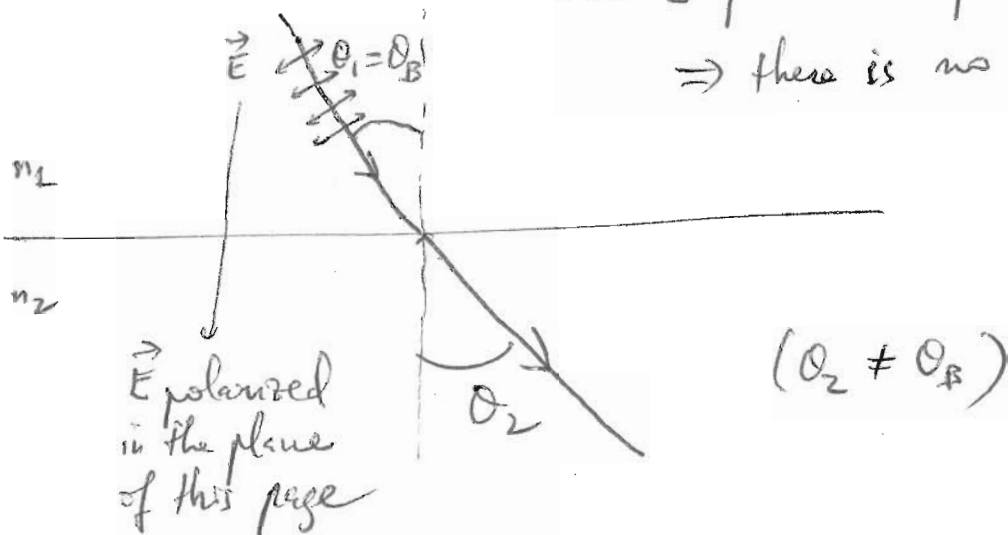 ⇒ there is no
E⃗ θ₁ = θ_B
n₁
n₂
E⃗ polarized
in the plane
of this page
θ₂
(θ₂ ≠ θ_B)